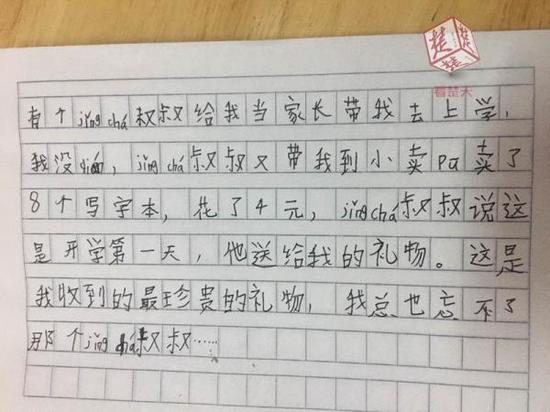 楚
楚
楚
看楚天
有个jǐng chá叔叔给我当家长带我去上学,
我没qián,jǐng chá叔叔又带我到小卖pù卖了
8个写字本,花了4元,jǐng chá叔叔说这
是开学第一天,他送给我的礼物。这是
我收到的最珍贵的礼物,我总也忘不了
那个jǐng chá叔叔……